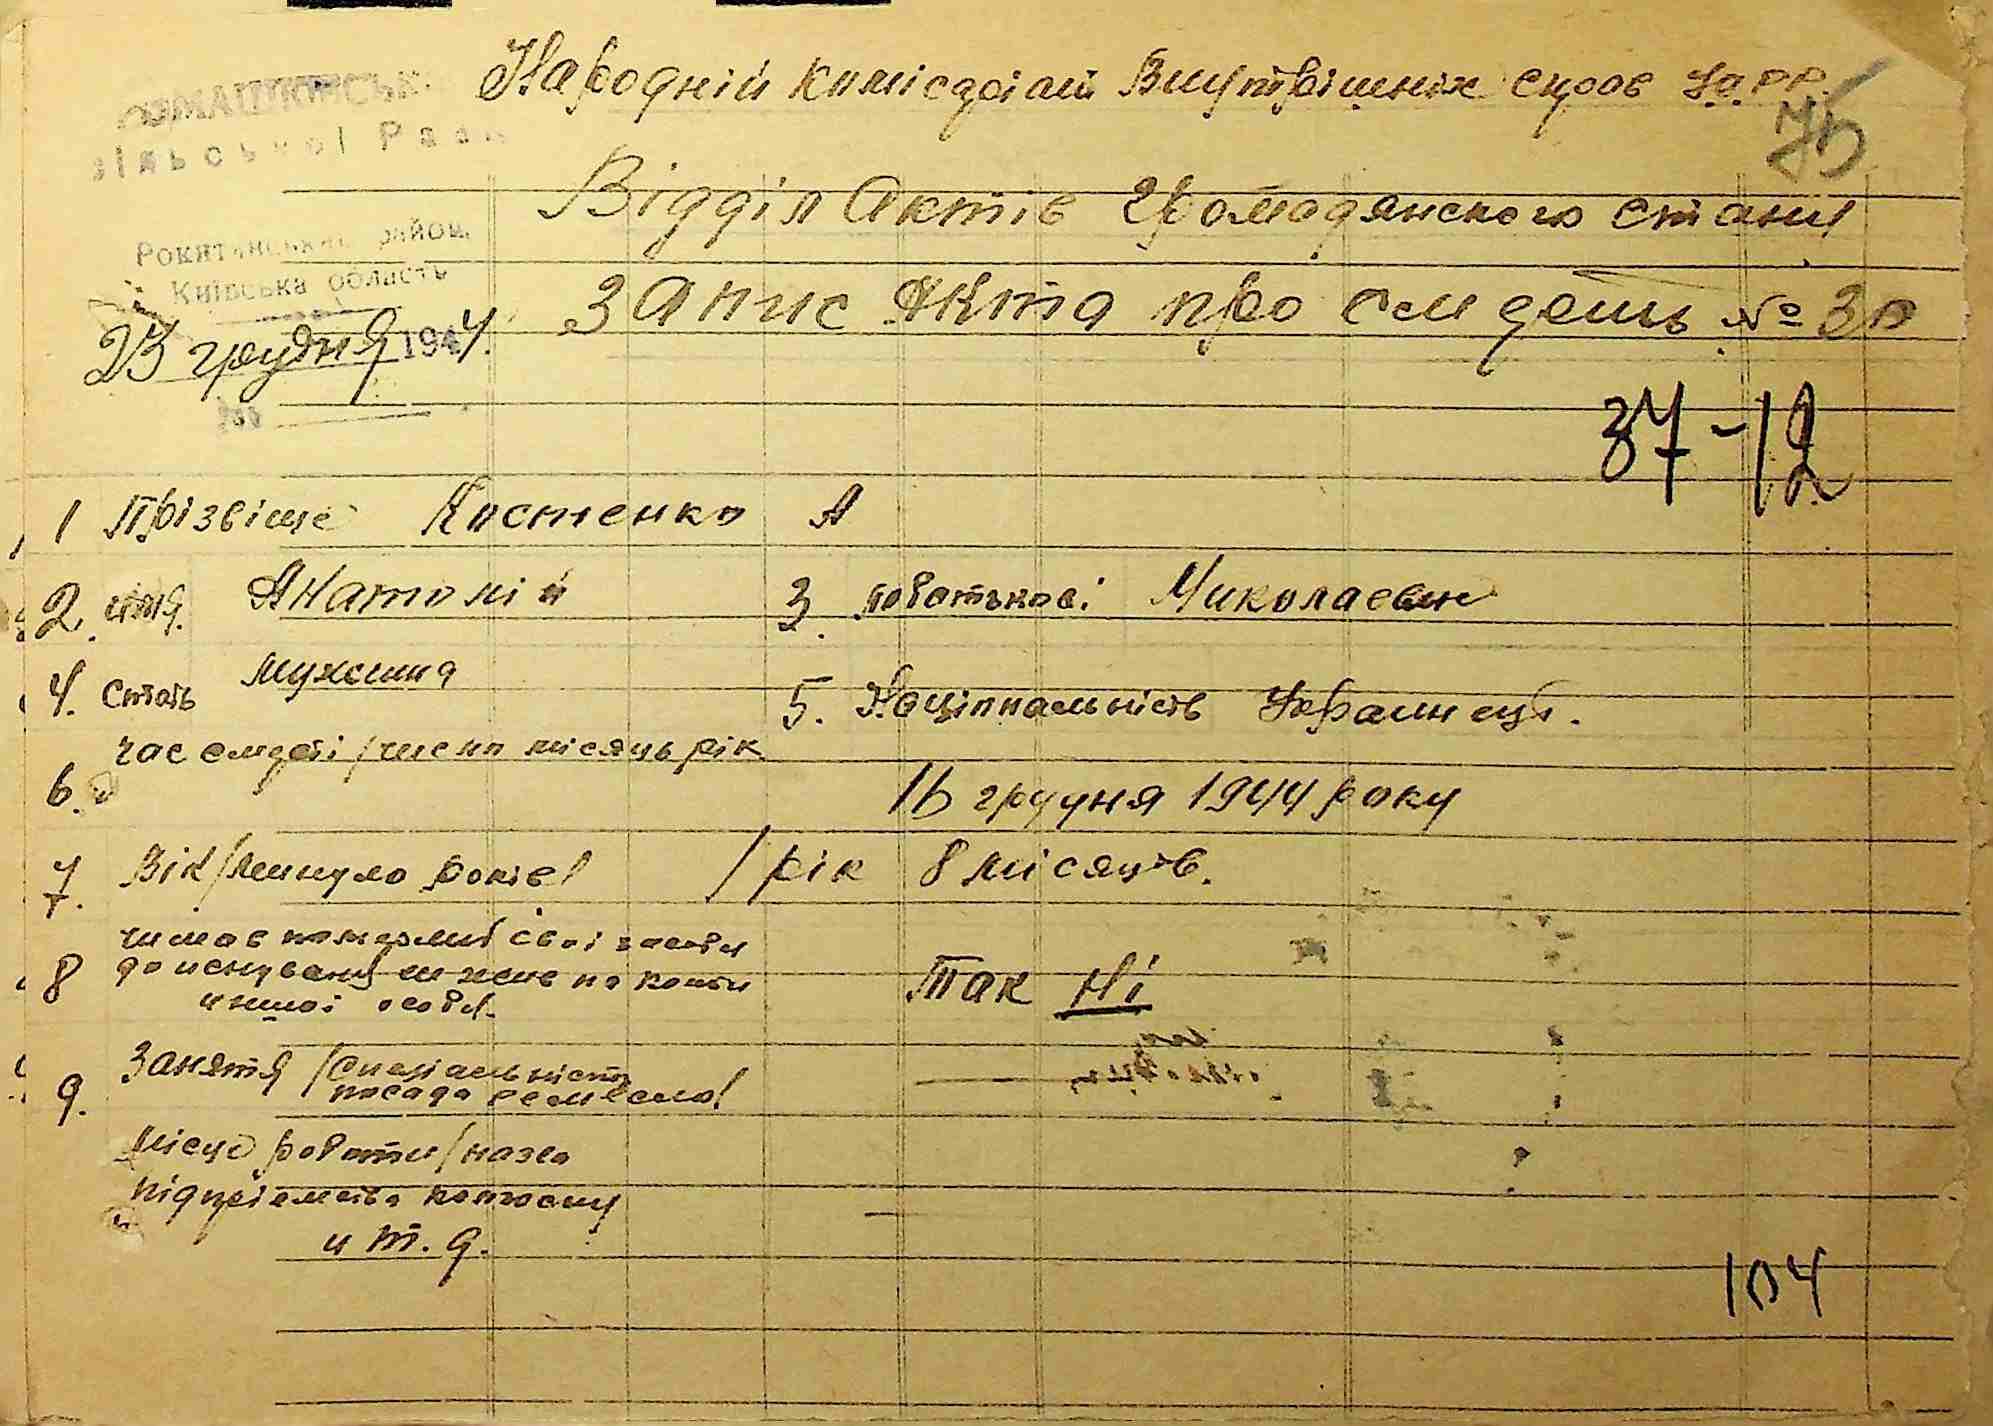 Народній комісаріат Внутрішніх справ УРСР
75
сільської Ради
Відділ Актів Громадянского стану
Рокитнянський район,
Київська область
Запис Акта про смерть № 30
23 грудня 1944.
37-12
1 Прізвіще Костенко А
2. імя. Анатолій 3. побатькові Миколаевич
4. Стать мужчина 5. Національність Украинець.
6. час смерті /число місяць рік
16 грудня 1944 року
7. Вік /минуло років/ 1 рік 8 місяців.
8 чи мав померлий свої засоби
до иснування чи жив на кошти
иншої особи.
Так Ні
9. Заняття /Спеціальність
посада ремесло/
місце роботи /назва
підприємства колгоспу
и т. д.
104